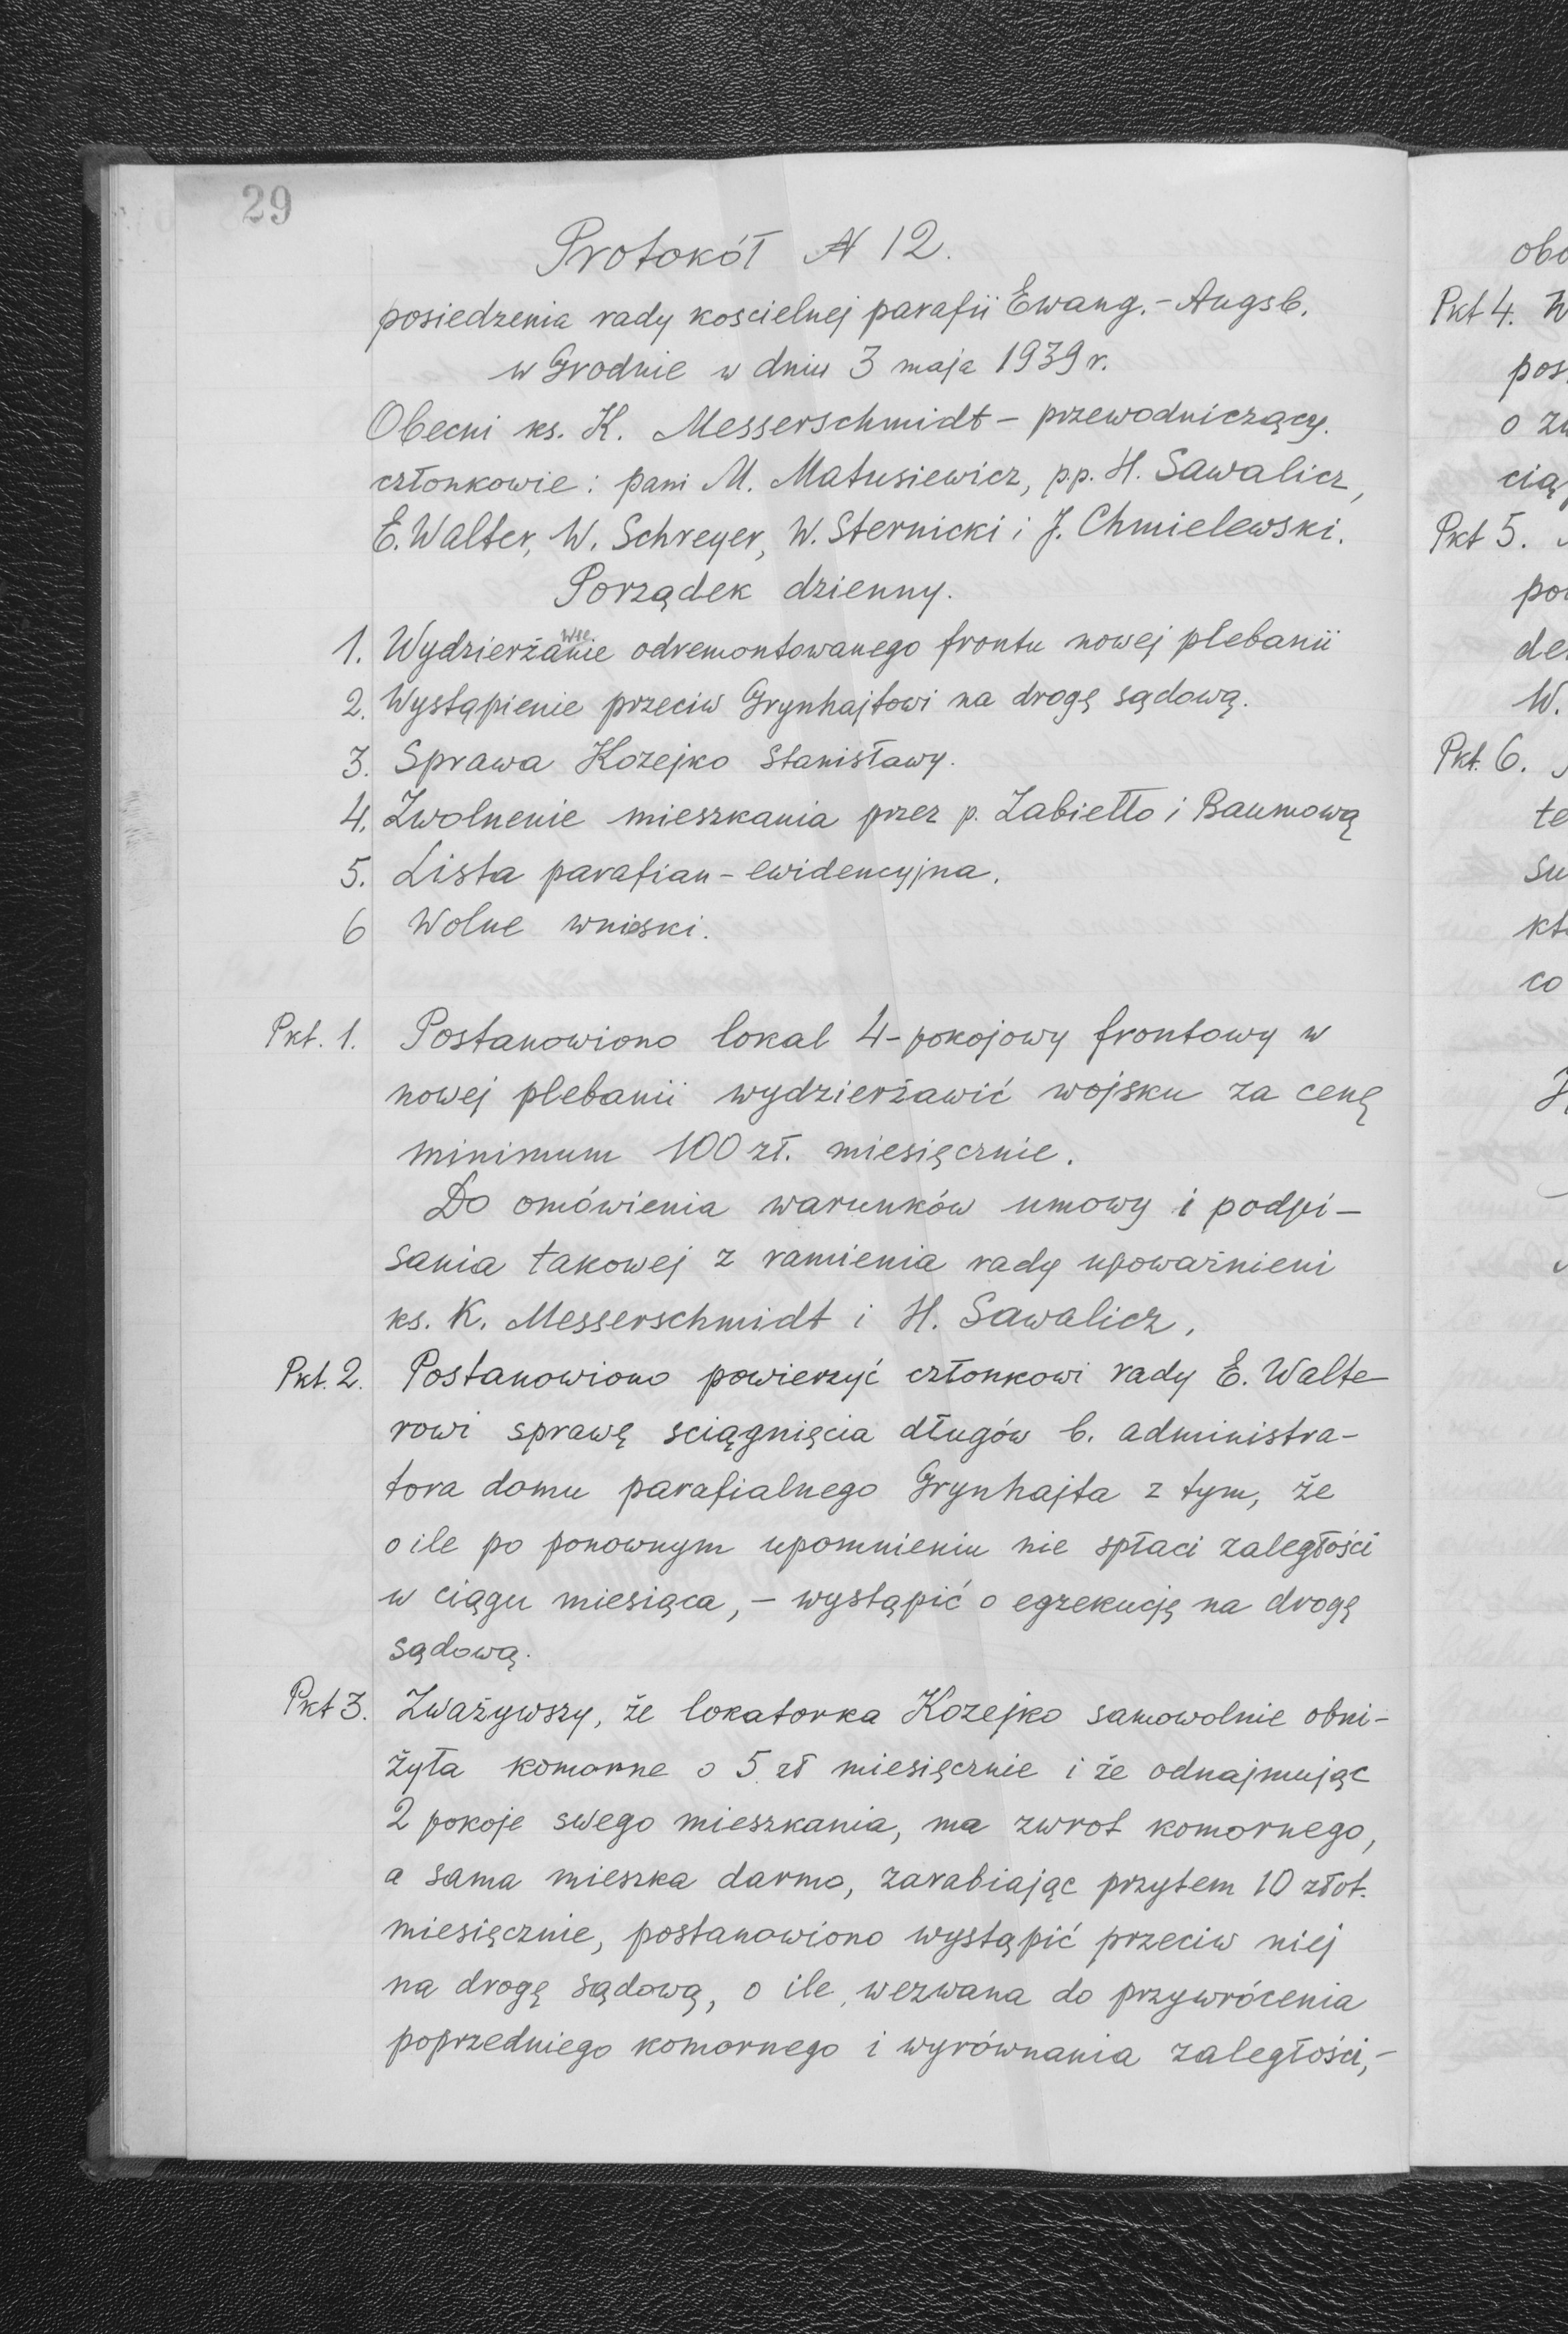 29
Protokół N 12.
posiedzenia rady koscielnej parafii Ewang.-Augsb.
w Grodnie w dniu 3 maja 1939 r.
Obecni ks. K. Messerschmidt - przewodniczący.
członkowie: pani M. Matusiewicz, p.p. H. Sawalicz,
E. Walter, W. Schreyer, W. Sternicki i J. Chmielewski.
Porządek dzienny.
wie.
1. Wydzierżanie odremontowanego frontu nowej plebanii
2. Wystąpienie przeciw Grynhajtowi na drogę sądową.
3. Sprawa Kozejko Stanisławy.
4. Zwolnenie mieszkania przez p. Zabiełło i Baumową
5. Lista parafian - ewidencyjna.
6 Wolne wnioski.
Pkt. 1. Postanowiono lokal 4-pokojowy frontowy w
nowej plebanii wydzierżawić wojsku za cenę
minimum 100 zł. miesięcznie.
Do omówienia warunków umowy i podpi-
sania takowej z ramienia rady upoważnieni
ks. K. Messerschmidt i H. Sawalicz.
Pkt. 2. Postanowiono powierzyć członkowi rady E. Walte-
rowi sprawę sciągnięcia długów b. administra-
tora domu parafialnego Grynhajta z tym, że
o ile po ponownym upomnieniu nie spłaci zaległości
w ciągu miesiąca, - wystąpić o egzekucję na drogę
sądową.
Pkt 3. Zważywszy, że lokatorka Kozejko samowolnie obni-
żyła komorne o 5 zł miesięcznie i że odnajmując
2 pokoje swego mieszkania, ma zwrot komornego,
a sama mieszka darmo, zarabiając przytem 10 złot.
miesięcznie, postanowiono wystąpić przeciw niej
na drogę sądową, o ile, wezwana do przywrócenia
poprzedniego komornego i wyrównania zaległości,-
obo
Pkt 4.
pos
o zw
cią
Pkt 5.
po
de
W.
Pkt. 6.
te
su
kt
co